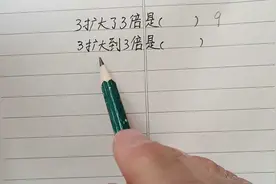 3扩大了3倍是(  ) 9
3扩大到3倍是(  )